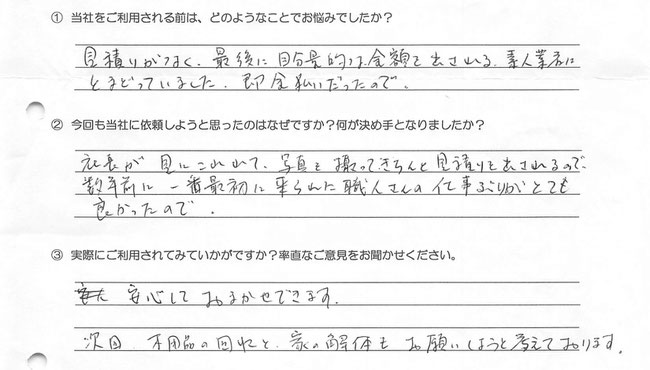 ① 当社をご利用される前は、どのようなことでお悩みでしたか？
見積りがなく、最後に目分量的な金額を出される、素人業者に
とまどっていました。即金払いだったので。
② 今回も当社に依頼しようと思ったのはなぜですか？何が決め手となりましたか？
社長が見にこれれて、写真を撮ってきちんと見積りを出されるので、
数年前に一番最初に来られた職人さんの仕事ぶりがとても
良かったので。
③ 実際にご利用されてみていかがですか？率直なご意見をお聞かせください。
安心しておまかせできます。
次回、不用品の回収と、家の解体もお願いしようと考えております。